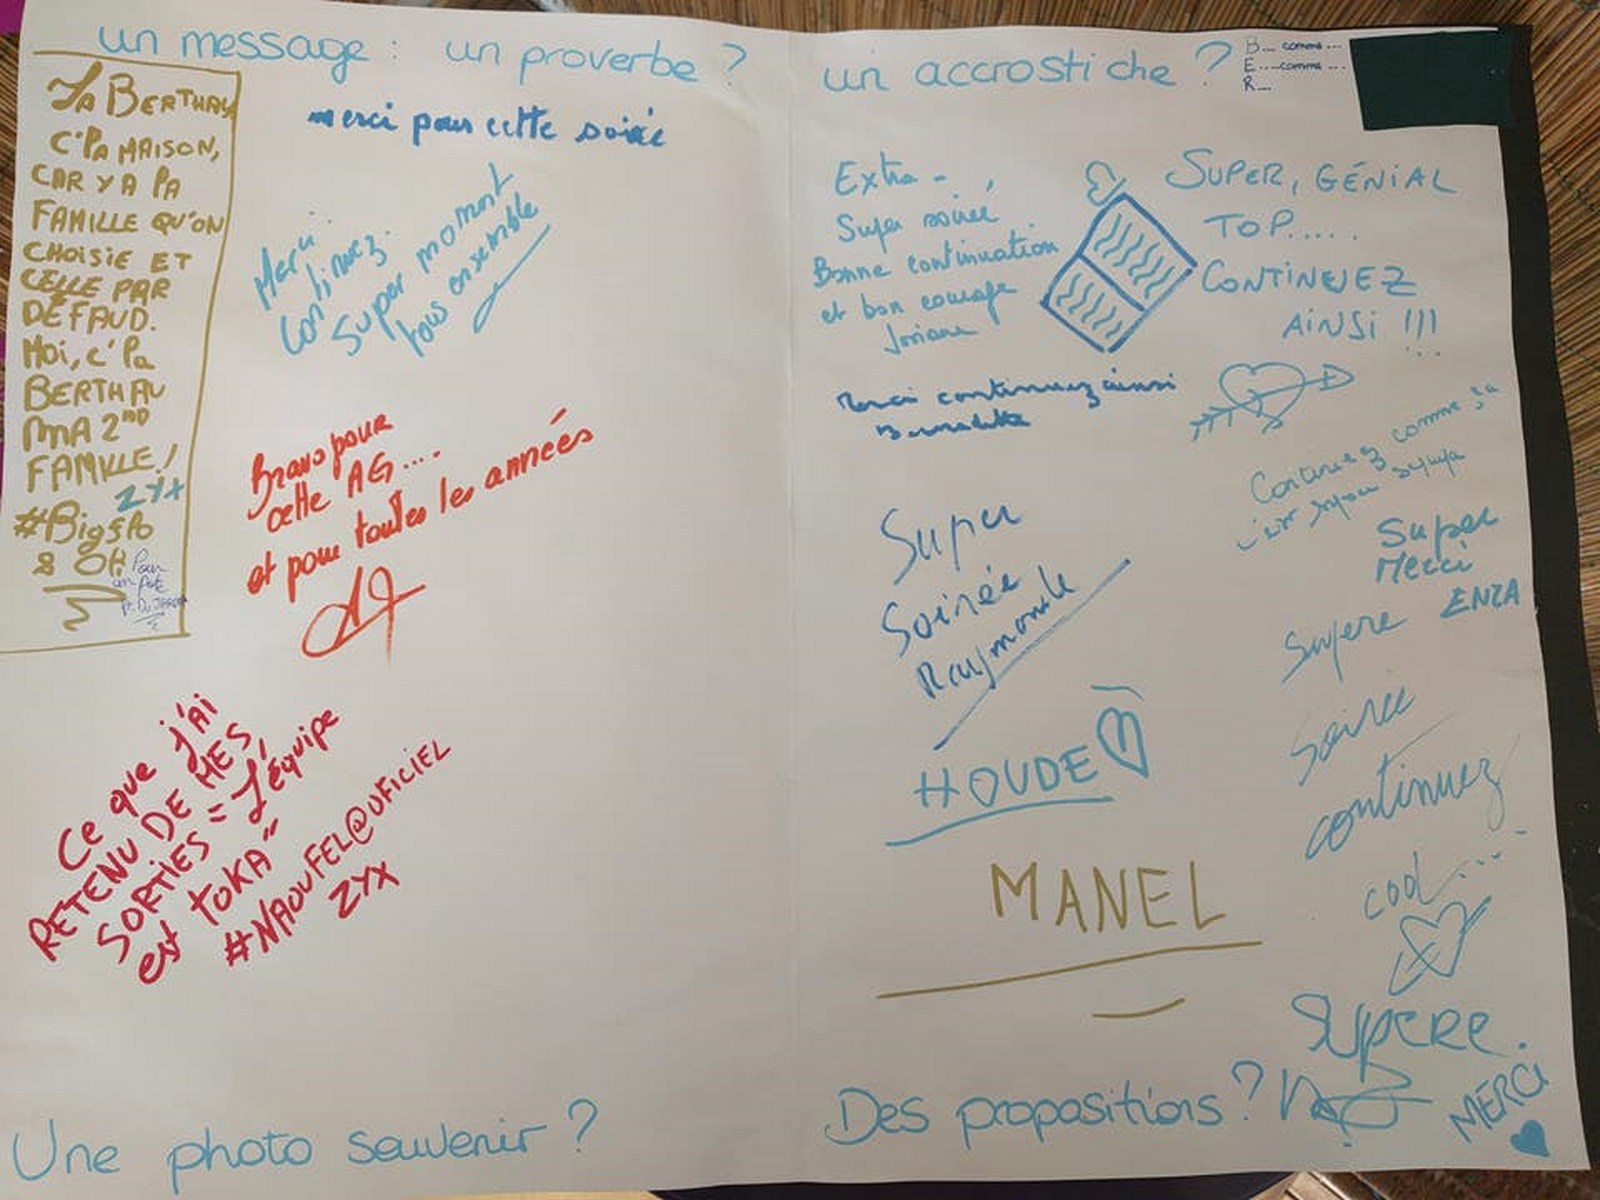 un message : un proverbe ?
LA BERTHAU
C'PA MAISON,
CAR Y A PA
FAMILLE QU'ON
CHOISIE ET
CELLE PAR
DEFAUD.
MOI, C'Pa
BERTHAU
MA 2ND
FAMILLE !
ZYX
#Bigflo
& Oli
Pour
merci pour cette soirée
Merci
Continuez
Super moment
tous ensemble
Bravo pour
cette AG....
et pour toutes les années
Ce que j'ai
RETENU DE MES
SORTIES = "L'équipe
est TOKA"
#NAOUFEL@UFICIEL
ZYX
Une photo souvenir ?
un accrostiche ?
B... comme ...
E... comme ...
R...
Extra -
Super soirée
Bonne continuation
et bon courage
Josiane
SUPER, GÉNIAL
TOP.....
CONTINUEZ
AINSI !!!
Merci continuez ainsi
Bernadette
Continuez comme ça
super sympa
Super
Merci
ENZA
Super
Soirée
Raymonde
HOUDE
MANEL
Supere
soirée
continuez
cool....
SUPERE.
Des propositions ?
MERCI